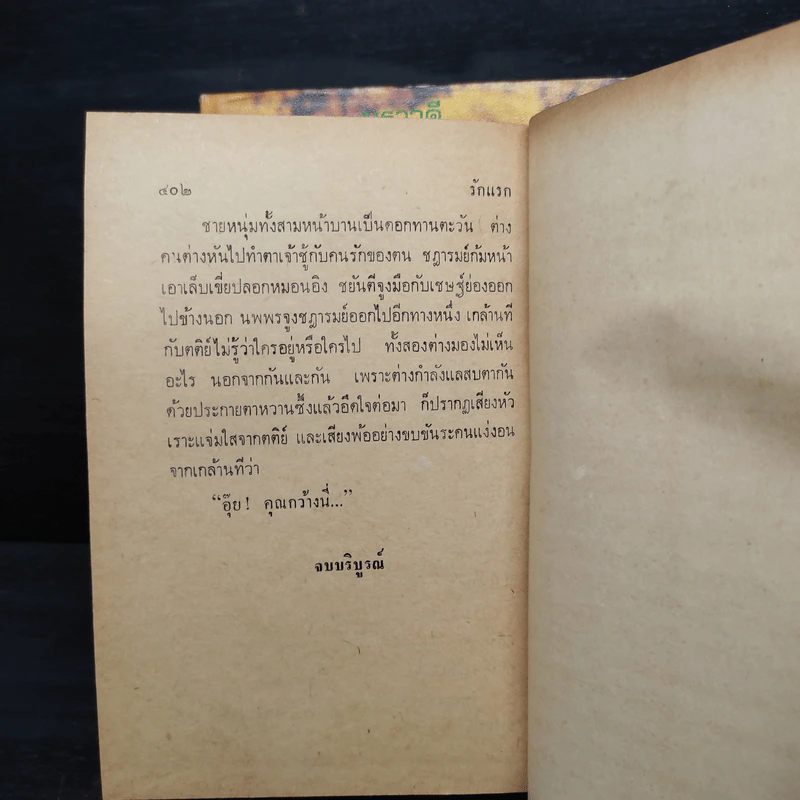 ทวาวดี
๔๐๒ รักแรก
ชายหนุ่มทั้งสามหน้าบานเป็นดอกทานตะวัน ต่าง
คนต่างหันไปทำตาเจ้าชู้กับคนรักของตน ชฎารมย์ก้มหน้า
เอาเล็บเขี่ยปลอกหมอนอิง ชยันตีจูงมือกับเชษฐ์ย่องออก
ไปข้างนอก นพพรจูงชฎารมย์ออกไปอีกทางหนึ่ง เกล้านที
กับตติย์ไม่รู้ว่าใครอยู่หรือใครไป ทั้งสองต่างมองไม่เห็น
อะไร นอกจากกันและกัน เพราะต่างกำลังแลสบตากัน
ด้วยประกายตาหวานซึ้งแล้วอึดใจต่อมา ก็ปรากฏเสียงหัว
เราะแจ่มใสจากตติย์ และเสียงพ้ออย่างขบขันระคนแง่งอน
จากเกล้านทีว่า
“อุ๊ย! คุณกว้างนี่...”
จบบริบูรณ์